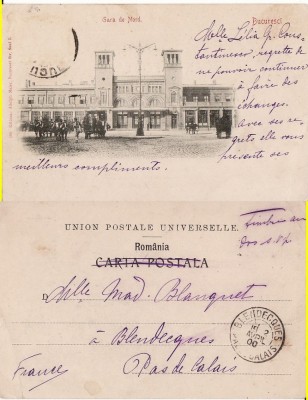 Gara de Nord.
Bucuresci
Mlle Lilia Gr. Cons-
tantinesco, regrette de
ne pouvoir continuer
à faire des
échanges.
Avec ses re-
grets elle vous
présente ses
meilleurs compliments.
UNION POSTALE UNIVERSELLE.
România
CARTA POSTALA
Timbre au
dos s.v.p.
D Mlle Mad. Blanquet
à Blendecques
Pas de Calais
France
BLENDECQUES
2
AVRIL
00
PAS DE CALAIS